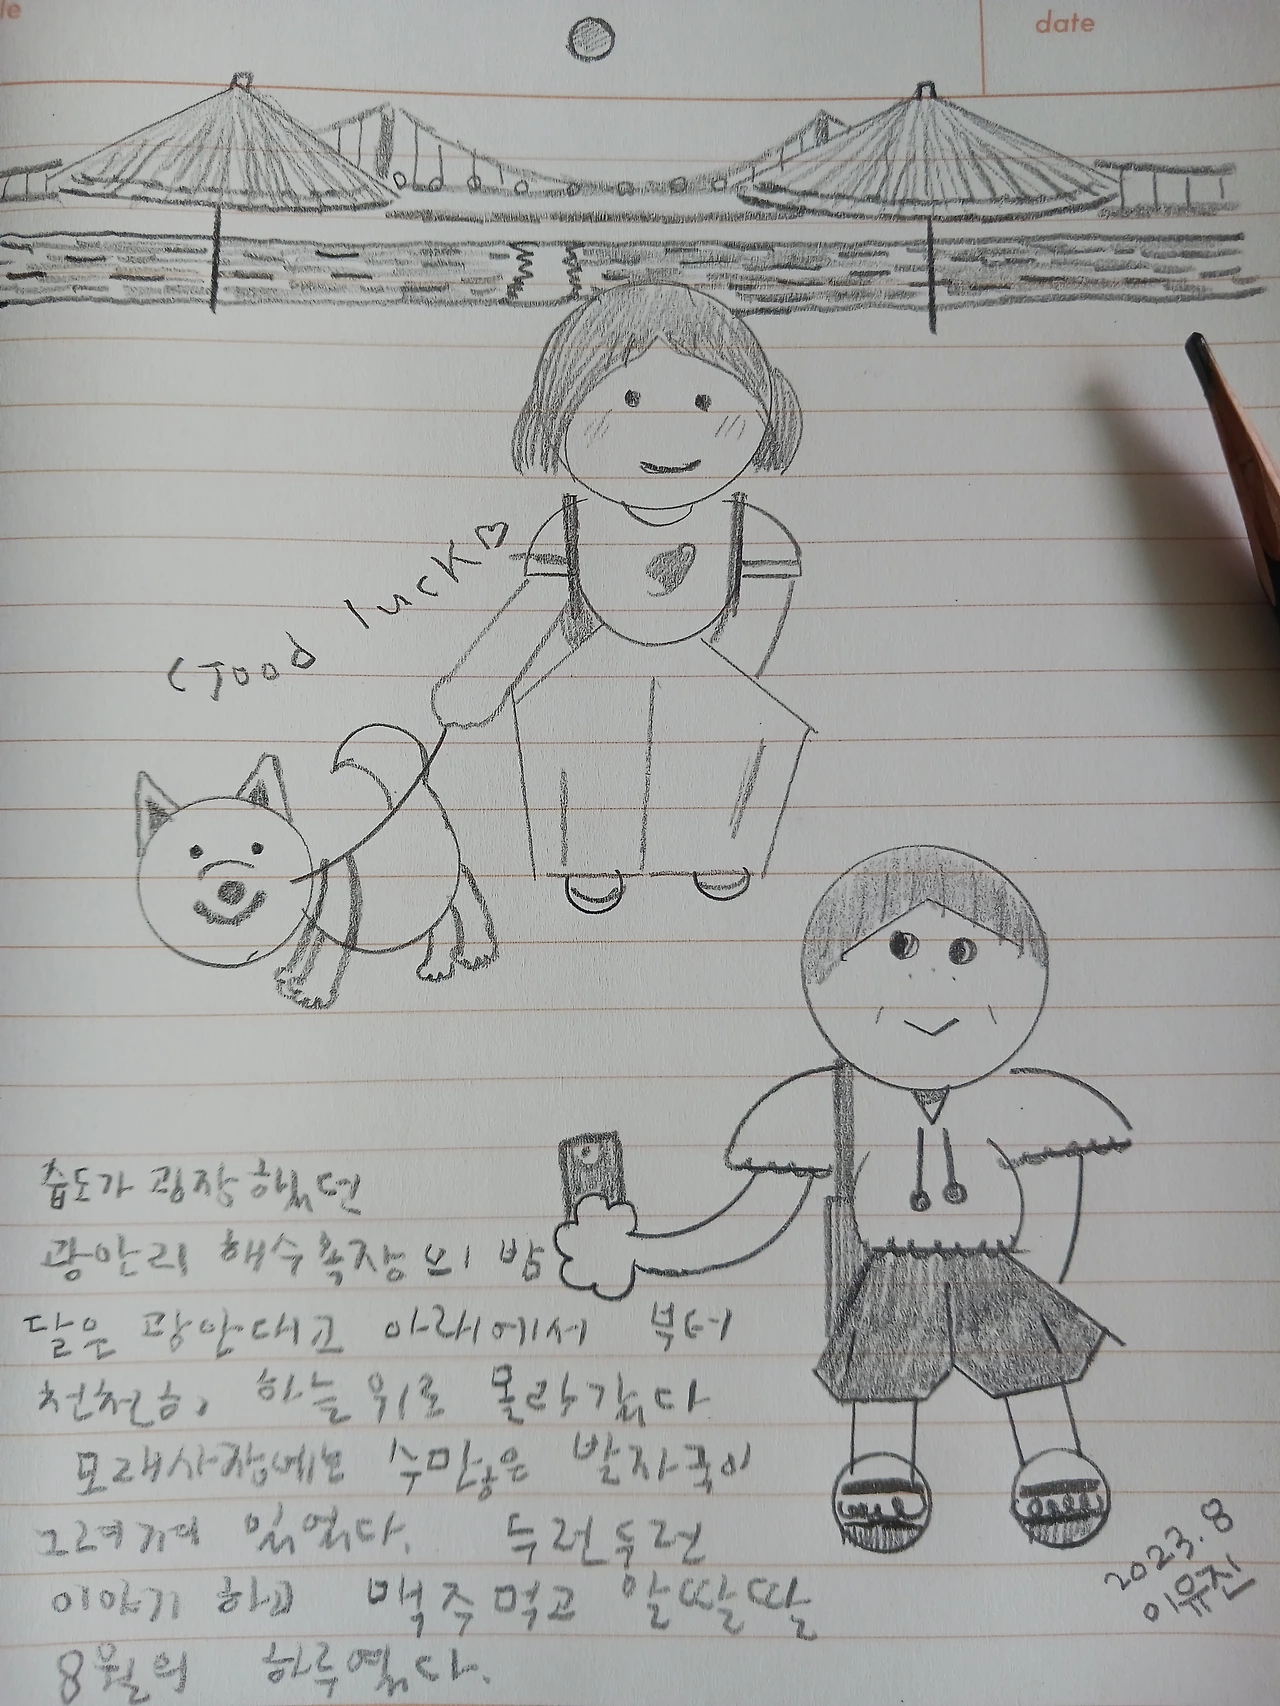 le
date
Good luck♡
습도가 굉장했던
광안리 해수욕장의 밤
달은 광안대교 아래에서 부터
천천히, 하늘 위로 올라갔다
모래사장에는 수만은 발자국이
그려져 있었다. 두런두런
이야기 하고 맥주먹고 알딸딸
8월의 하루였다.
2023. 8
이유진